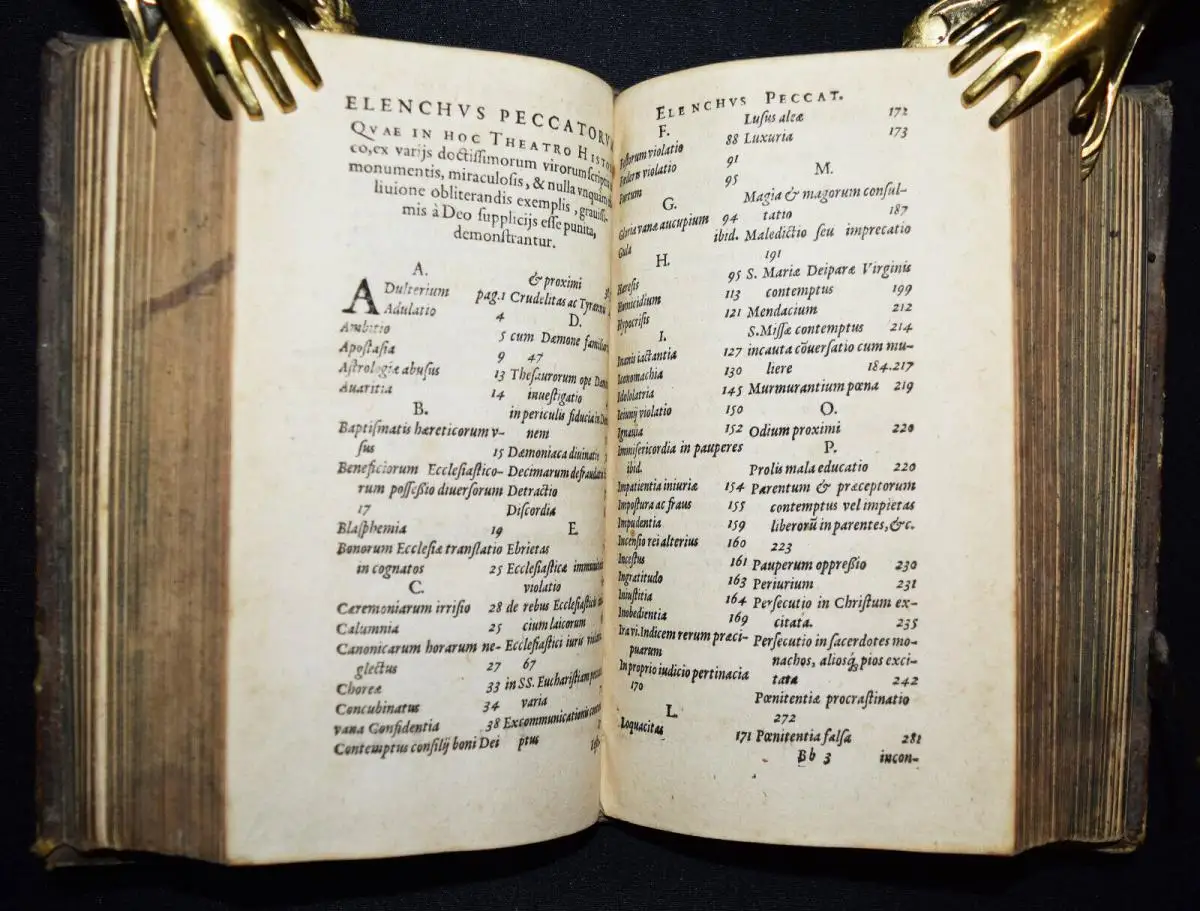 ELENCHVS PECCATORVM
QVAE IN HOC THEATRO HISTO-
co, ex varijs doctiſſimorum virorum
monumentis, miraculoſis, & nulla vnquam
liuione obliterandis exemplis, grauiſſi-
mis à Deo ſupplicijs eſſe punita,
demonſtrantur.
A.
ADulterium pag.1
Adulatio 4
Ambitio 5
Apoſtaſia 9
Aſtrologiæ abuſus 13
Auaritia 14
B.
Baptiſmatis hæreticorum v-
ſus 15
Beneficiorum Eccleſiaſtico-
rum poſſeßio diuerſorum
17
Blaſphemia 19
Bonorum Eccleſiæ tranſlatio
in cognatos 25
C.
Cæremoniarum irriſio 28
Calumnia 25
Canonicarum horarum ne-
glectus 27
Choreæ 33
Concubinatus 34
vana Confidentia 38
Contemptus conſilij boni Dei
& proximi
Crudelitas ac Tyrannis
D.
cum Dæmone
47
Theſaurorum ope
inueſtigatio
in periculis fiducia in
nem
Dæmoniaca diuinatio
Decimarum
Detractio
Diſcordia
E.
Ebrietas
Eccleſiaſticæ
violatio
de rebus Eccleſiaſticis
cium laicorum
Eccleſiaſtici iuris
67
in SS. Euchariſtiam
varia
Excommunicationis
ptus
ELENCHVS PECCAT.
F.
Feſtorum violatio 88
Fœderis violatio 91
Furtum 95
G.
Gloriæ vanæ aucupium 94
Gula ibid.
H.
Hæreſis 95
Homicidium 113
Hypocriſis 121
I.
Inanis iactantia 127
Iconomachia 130
Idololatria 145
Ieiunij violatio 150
Ignauia 152
Immiſericordia in pauperes
ibid.
Impatientia iniuriæ 154
Impoſtura ac fraus 155
Impudentia 159
Incenſio rei alterius 160
Inceſtus 161
Ingratitudo 163
Iniuſtitia 164
Inobedientia 169
Ira vi. Indicem rerum præci-
puarum
In proprio iudicio pertinacia
170
L.
Loquacitas 171
Luſus aleæ 172
Luxuria 173
M.
Magia & magorum conſul-
tatio 187
Maledictio ſeu imprecatio
191
S. Mariæ Deiparæ Virginis
contemptus 199
Mendacium 212
S. Miſſæ contemptus 214
incauta cōuerſatio cum mu-
liere 184.217
Murmurantium pœna 219
O.
Odium proximi 220
P.
Prolis mala educatio 220
Parentum & præceptorum
contemptus vel impietas
liberorū in parentes, &c.
223
Pauperum oppreßio 230
Periurium 231
Perſecutio in Chriſtum ex-
citata. 235
Perſecutio in ſacerdotes mo-
nachos, alioſq; pios exci-
tata 242
Pœnitentiæ procraſtinatio
272
Pœnitentia falſa 281
Bb 3 incon-